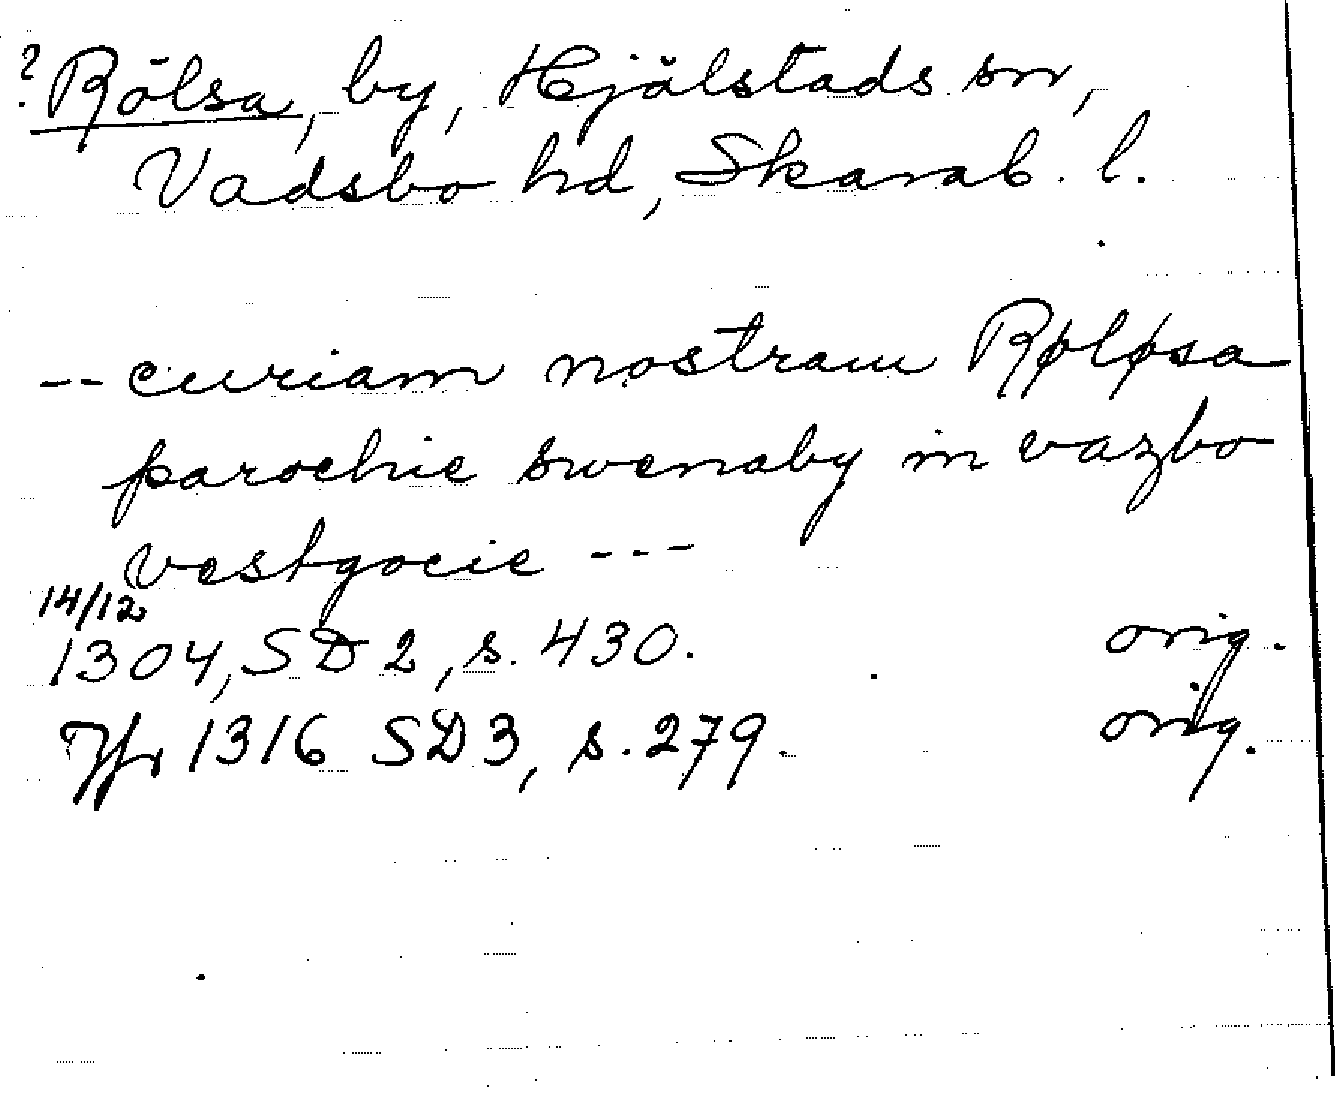 ? Rölsa, by, Hjälstads sn,
Vadsbo hd, Skarab. l.
-- curiam nostram Røløsa
parochie swenaby in vazbo
vestgocie ---
14/12
1304, SD 2, s. 430. orig.
Jfr 1316 SD 3, s. 279. orig.